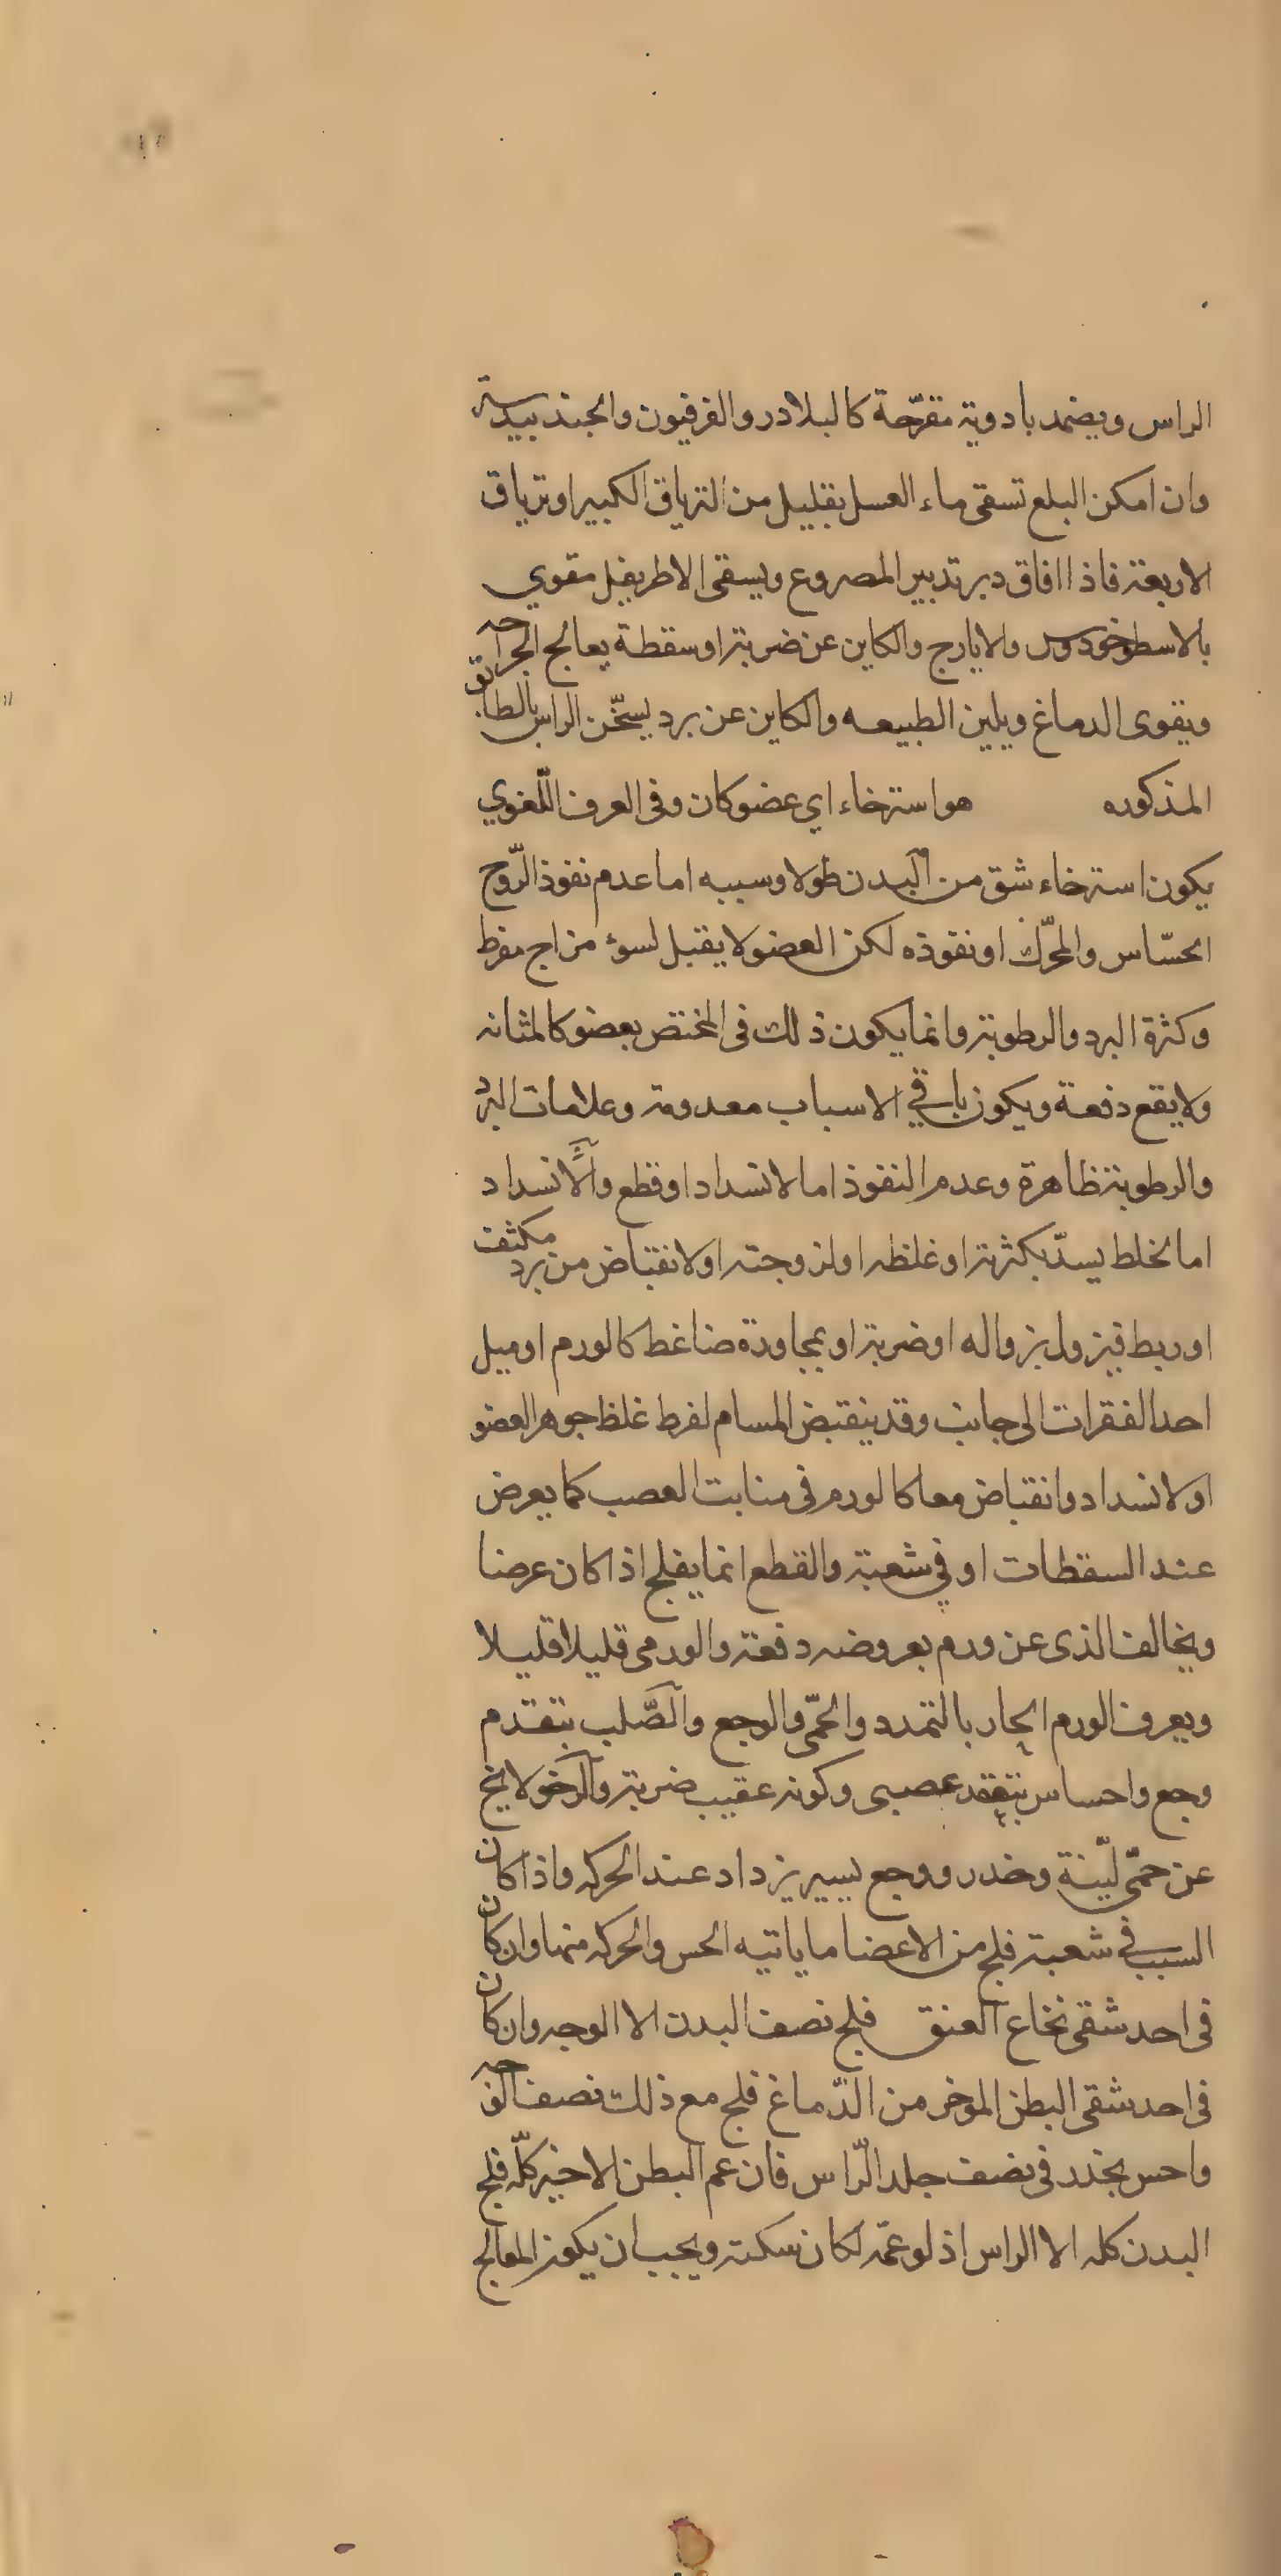 الراس ويضمد بادوية مقرّحة كالبلادر والفرفيون والجندبيدستر
وان امكن البلع تسقى ماء العسل بقليل من الترياق الكبير او ترياق
الاربعة فاذا افاق دبر تدبير المصروع ويسقى الاطريفيل مقوي
بالاسطوخودوس والايارج والكاين عن ضربة او سقطة يعالج الجراحه
ويقوى الدماغ ويلين الطبيعه والكاين عن برد يسخّن الراس بالطابق
المذكوره هو استرخاء اي عضو كان وفى العرف اللّغوي
يكون استرخاء شق من البدن طولا وسببه اما عدم نفوذ الرّوح
الحسّاس والمحرّك او نفوذه لكن العضو لا يقبل لسوء مزاج مفرط
وكثرة البرد والرطوبة وانما يكون ذلك فى المختص بعضو كالمثانه
ولا يقع دفعة ويكون باقي الاسباب معدومة وعلامات البرد
والرطوبة ظاهرة وعدم النفوذ اما لانسداد او قطع والانسداد
اما لخلط يسدّ بكثرته او غلظه او لزوجته او لانقباض من برد مكثف
او ربط فيزول بزواله او ضربة او بمجاورة ضاغط كالورم او ميل
احد الفقرات الى جانب وقد ينقبض المسام لفرط غلظ جوهر العضو
او لانسداد وانقباض معا كالورم فى منابت العصب كما يعرض
عند السقطات او في شعبة والقطع انما يفلج اذا كان عرضا
ويخالف الذى عن ورم بعروضه دفعة والورمى قليلا قليلا
ويعرف الورم الحار بالتمدد والحمّى والوجع والصّلب بتقدم
وجع واحساس بتعقد عصبى وكونه عقيب ضربة والرخو لا يخ
عن حمّى ليّنة وخدر ووجع يسير يزداد عند الحركه واذا كان
السبب في شعبة فلج من الاعضا ما ياتيه الحس والحركه منها وان كان
فى احد شقى نخاع العنق فلج نصف البدن الا الوجه وان كان
فى احد شقى البطن الموخر من الدّماغ فلج مع ذلك نصف الوجه
واحس بخدر فى نصف جلد الرّاس فان عم البطن الاخير كلّه فلج
البدن كله الا الراس اذ لو عمّه لكان سكتة ويجب ان يكون المعالج